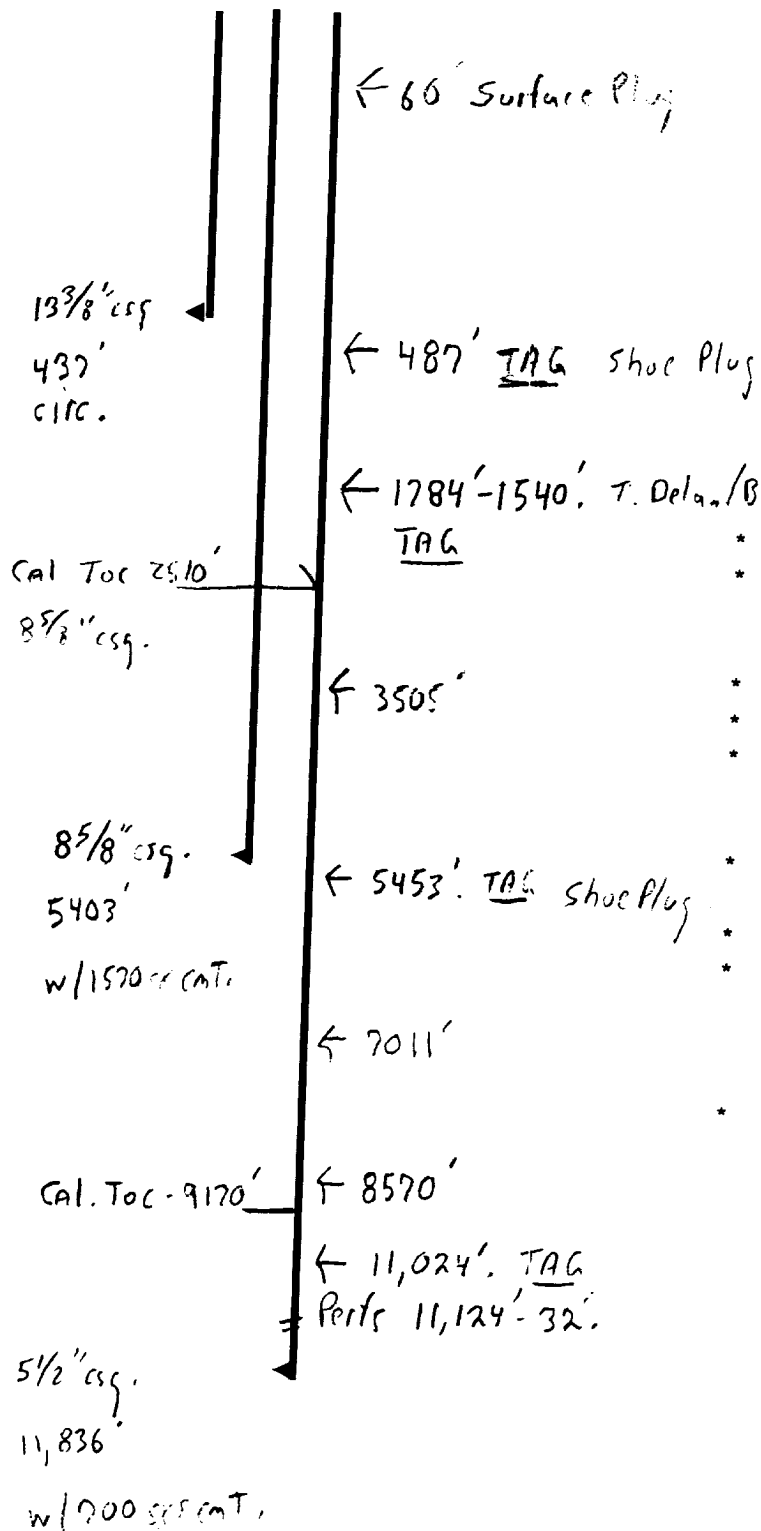 ← 60' Surface Plug
13 3/8" csg
437'
circ.
← 487' TAG Shoe Plug
← 1784'-1540'. T. Delaw/B
TAG
*
*
Cal Toc 2510'
8 5/8" csg.
← 3505'
*
*
*
8 5/8" csg.
5403'
w/1570 sx cmT.
← 5453'. TAG Shoe Plug
*
*
*
← 7011'
*
Cal. Toc - 9170'
← 8570'
← 11,024'. TAG
Perfs 11,124'-32'.
5 1/2" csg.
11,836'
w/700 sxs cmT.